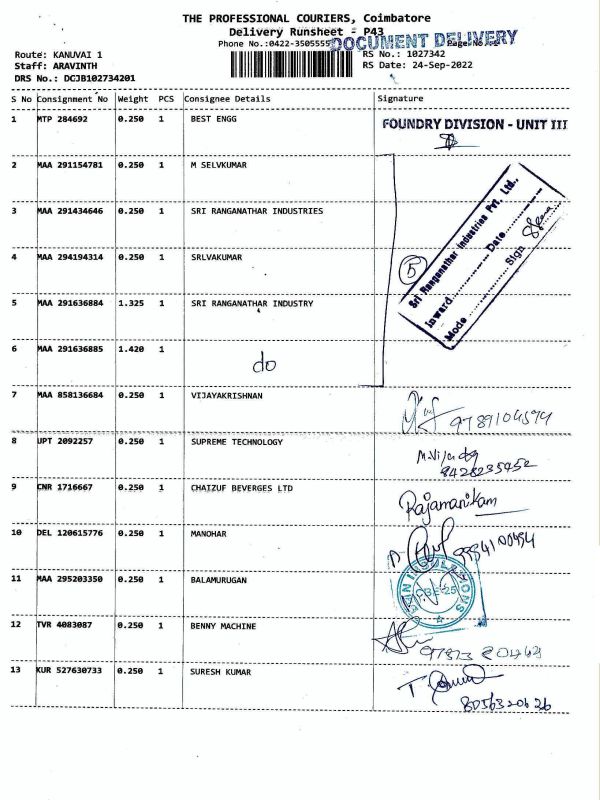 THE PROFESSIONAL COURIERS, Coimbatore
Delivery Runsheet - P43
Phone No.:0422-3505555
DOCUMENT DELIVERY
Route: KANUVAI 1
RS No.: 1027342
Staff: ARAVINTH
RS Date: 24-Sep-2022
DRS No.: DCJB102734201
S No Consignment No Weight PCS Consignee Details Signature
1 MTP 284692 0.250 1 BEST ENGG
FOUNDRY DIVISION - UNIT III
2 MAA 291154781 0.250 1 M SELVKUMAR
3 MAA 291434646 0.250 1 SRI RANGANATHAR INDUSTRIES
4 MAA 294194314 0.250 1 SRLVAKUMAR
5
Sri Ranganathar Industries Pvt. Ltd.,
Inward Date
Mode Sign
5 MAA 291636884 1.325 1 SRI RANGANATHAR INDUSTRY
6 MAA 291636885 1.420 1 do
7 MAA 858136684 0.250 1 VIJAYAKRISHNAN
9789104594
8 UPT 2092257 0.250 1 SUPREME TECHNOLOGY
8428235952
9 CNR 1716667 0.250 1 CHAIZUF BEVERGES LTD Rajamanikam
10 DEL 120615776 0.250 1 MANOHAR
9994100494
11 MAA 295203350 0.250 1 BALAMURUGAN
12 TVR 4083087 0.250 1 BENNY MACHINE
13 KUR 527630733 0.250 1 SURESH KUMAR
8056320626